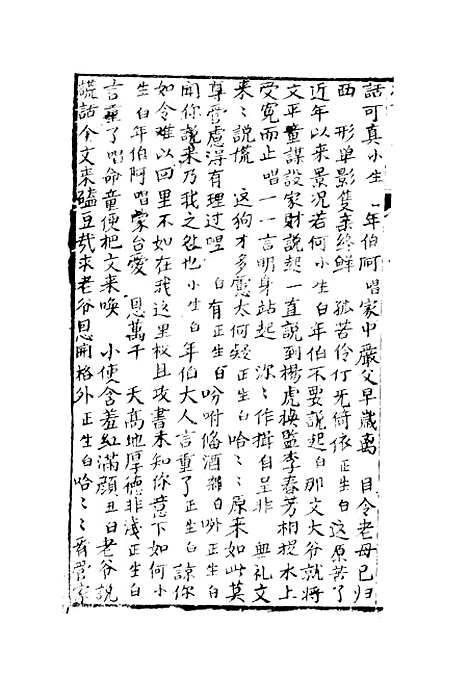 話可真小生 年伯阿唱家中嚴父早歲离 目令老母已归
西 形单影隻亲終鮮 孤苦伶仃无倚依正生白這原苦了
近年以来景况若何小生白年伯不要說起白那文大爷就将
文平童謀設家財說起一直說到楊虎换監李春芳相投水上
受寃而止唱一一言明身站起 作揖自呈非 無礼文
来〻說慌 這狗才多應太何疑正生白哈〻〻原来如此莫
尊管慮淂有理过哩 白有正生白 吩咐偹酒 白外正生白
闻你說来乃我之侄也小生白年伯大人言重了正生白諒你
如今难以回里不如在我这里权且攻書未知你意下如何小
生白年伯阿唱蒙台爱 恩萬千 天髙地厚德非淺正生白
言重了唱命童便把文来唤 小使含羞紅滿顔丑白老爷說
謊話今文来磕豆哉求老爷恩開格外正生白哈〻〻